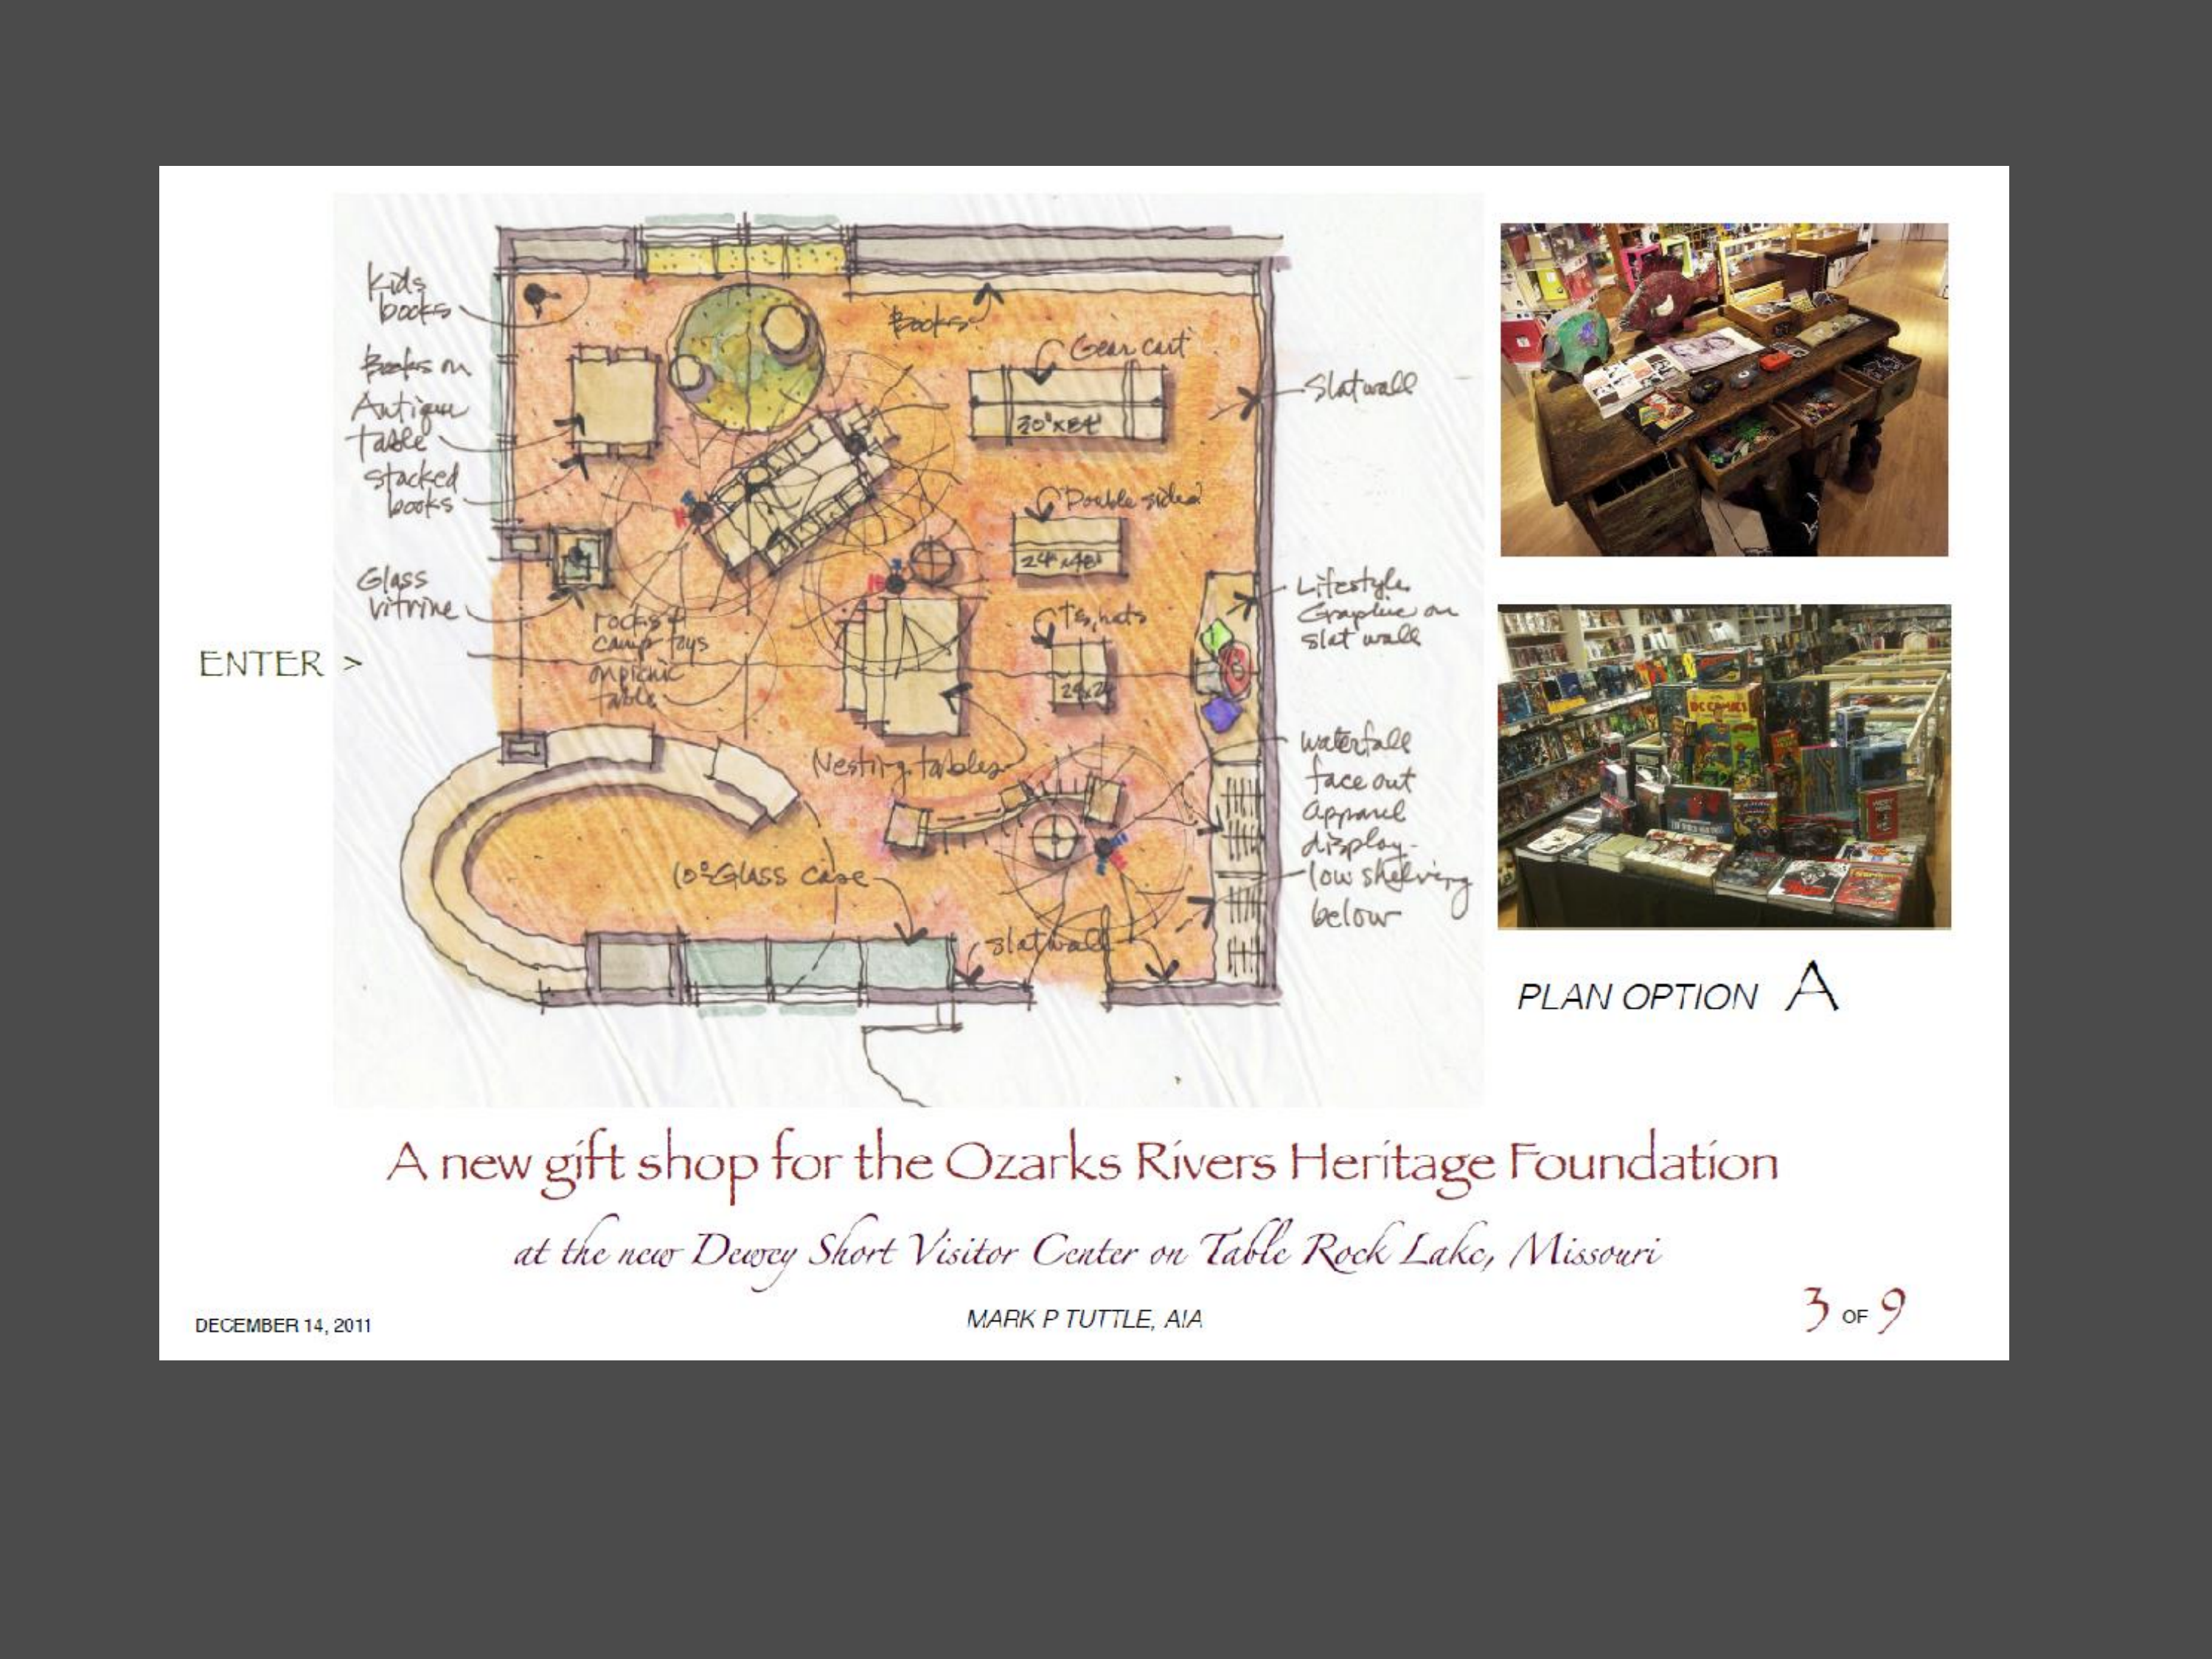 Kids
books
Books on
Antique
table
stacked
books
Glass
vitrine
ENTER >
Books
Gear cart
30"x84"
Double sided
24"x48"
T's, hats
24x24
rocks &
camp toys
on picnic
table
Nesting tables
10° Glass case
slatwall
Slatwall
Lifestyle
Graphic on
slat wall
waterfall
face out
apparel
display-
low shelving
below
DC COMICS
PLAN OPTION A
A new gift shop for the Ozarks Rivers Heritage Foundation
at the new Dewey Short Visitor Center on Table Rock Lake, Missouri
DECEMBER 14, 2011
MARK P TUTTLE, AIA
3 OF 9